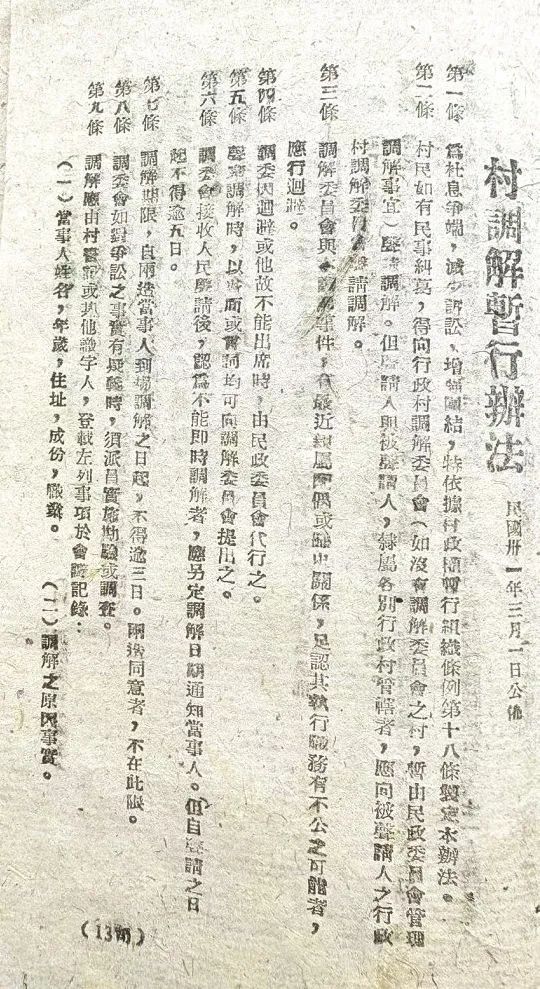 村調解暫行辦法
民國卅一年三月一日公佈
第一條 爲杜息爭端，減少訴訟，增強團結，特依據村政權暫行組織條例第十八條製定本辦法。
第二條 村民如有民事糾葛，得向行政村調解委員會（如沒會調解委員會之村，暫由民政委員會管理
調解事宜）聲請調解。但聲請人與被聲請人，隸屬各別行政村管轄者，應向被聲請人之行政
村調解委員會聲請調解。
第三條 調解委員會與調解事件，有最近親屬關係，足認其執行職務有不公之可能者，
應行迴避。
第四條 調委因迴避或他故不能出席時，由民政委員會代行之。
第五條 聲請調解時，以書面或言詞均可向調解委員會提出之。
第六條 調委會接收人民聲請後，認爲不能即時調解者，應另定調解日期通知當事人。但自聲請之日
起不得逾五日。
第七條 調解期限，自兩造當事人到場調解之日起，不得逾三日。兩造同意者，不在此限。
第八條 調委會如對爭訟之事實有疑義時，須派員實施勘驗或調查。
第九條 調解應由村書記或其他識字人，登載左列事項於會議記錄：
（一）當事人姓名，年歲，住址，成份，職業。 （二）調解之原因事實。
（13）